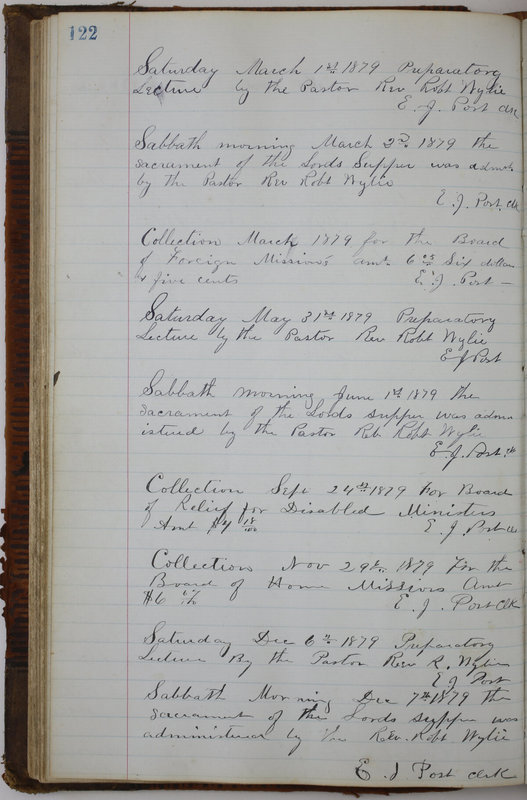 122
Saturday March 1st 1879 Preparatory
Lecture by the Pastor Rev Robt Wylie
E. J. Post clk
Sabbath morning March 2nd 1879 the
sacrament of the Lords Supper was
by the Pastor Rev Robt Wylie
E. J. Post. Clk
Collection March 1879 for the Board
of Foreign Missions amt 6 05 Six dollars
& five cents E. J. Post -
Saturday May 31st 1879 Preparatory
Lecture by the Pastor Rev Robt Wylie
E J Post
Sabbath morning June 1st 1879 the
sacrament of the Lords supper was admn
istered by the Pastor Robt Wylie
E. J. Post. clk
Collection Sept 24th 1879 For Board
of Relief for Disabled Ministers
Amt $4 18/100 E. J. Post Clk
Collection Nov 29th 1879 For the
Board of Home Missions Amt
$6 E. J. Post Clk
Saturday Dec 6th 1879 Preparatory
Lecture By the Pastor Rev R. Wylie
E J Post
Sabbath Morning Dec 7th 1879 the
sacrament of the Lords supper was
administered by the Rev. Robt Wylie
E. J Post clerk